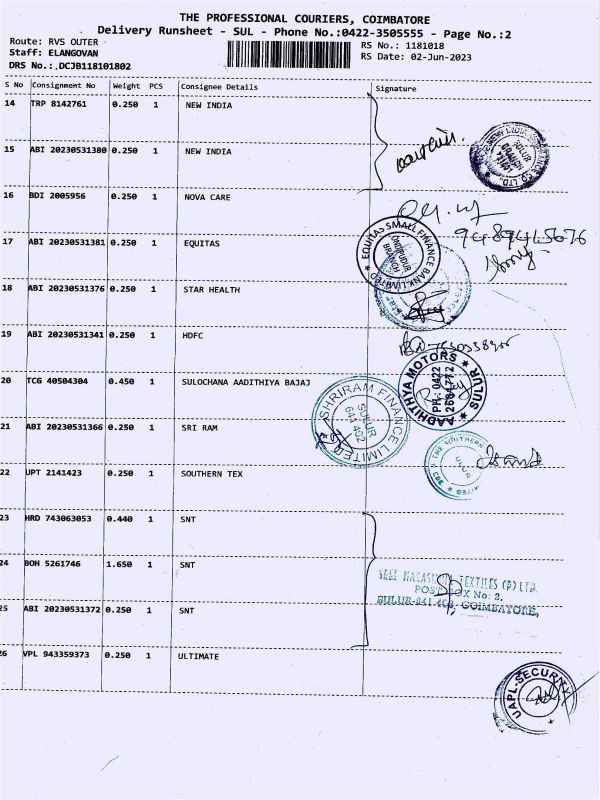 THE PROFESSIONAL COURIERS, COIMBATORE
Delivery Runsheet - SUL - Phone No.:0422-3505555 - Page No.:2
Route: RVS OUTER
RS No.: 1181018
Staff: ELANGOVAN
RS Date: 02-Jun-2023
DRS No.:.DCJB118101802
S No Consignment No Weight PCS Consignee Details Signature
14 TRP 8142761 0.250 1 NEW INDIA
15 ABI 20230531380 0.250 1 NEW INDIA
SULUR
BRANCH
16 BDI 2005956 0.250 1 NOVA CARE
17 ABI 20230531381 0.250 1 EQUITAS
EQUITAS SMALL FINANCE BANK LIMITED
ONDIPUDUR
BRANCH
18 ABI 20230531376 0.250 1 STAR HEALTH
19 ABI 20230531341 0.250 1 HDFC
20 TCG 40504304 0.450 1 SULOCHANA AADITHIYA BAJAJ
AADHITHYA MOTORS
SULUR
PH: 0422
2684772
21 ABI 20230531366 0.250 1 SRI RAM
SHRIRAM FINANCE LIMITED
SULUR
641 402
22 UPT 2141423 0.250 1 SOUTHERN TEX
THE SOUTHERN
SULUR
CBE
23 HRD 743063053 0.440 1 SNT
24 BOH 5261746 1.650 1 SNT
TEXTILES (P) LTD.
POST BOX No: 2,
SULUR-641 402, COIMBATORE,
25 ABI 20230531372 0.250 1 SNT
26 VPL 943359373 0.250 1 ULTIMATE
UAPL-SECURITY